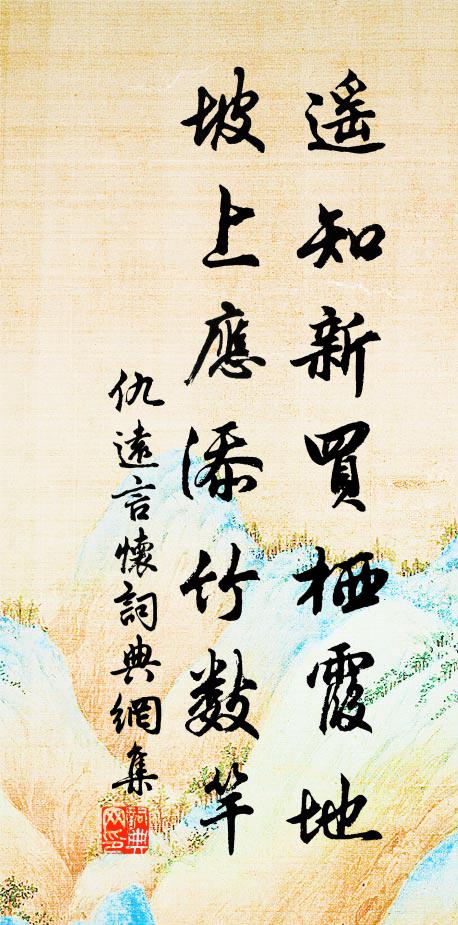 遥知新買栖霞地
坡上應添竹數竿
仇遠言懷詞典網集
詞典網印